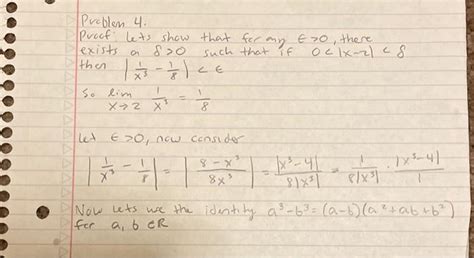 Problem 4.
Proof: Lets show that for any ε>0, there
exists a δ>0 such that if 0<|x-2|<δ
then |1/x³ - 1/8| < ε
So lim x→2 1/x³ = 1/8
Let ε>0, now consider
|1/x³ - 1/8| = |(8-x³)/(8x³)| = |x³-4|/(8|x³|) = 1/(8|x³|) · |x³-4|/1
Now lets use the identity a³-b³=(a-b)(a²+ab+b²)
for a, b ∈ℝ